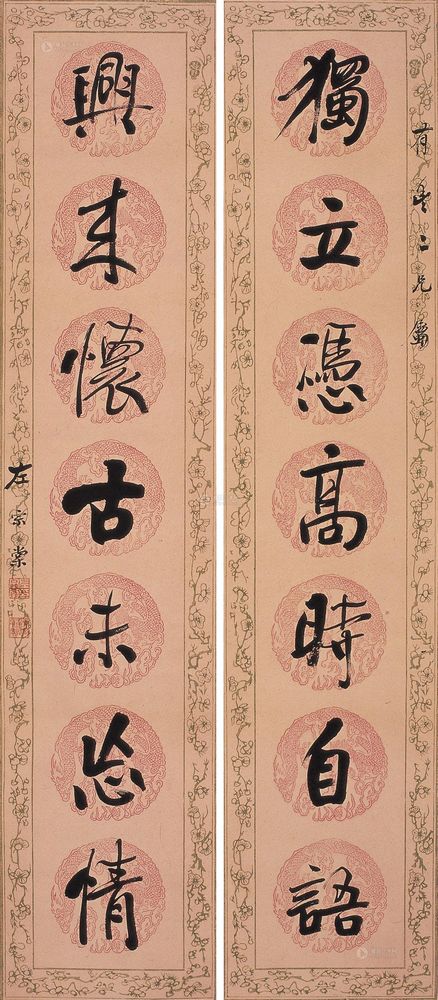 二兄屬
獨立憑高時自語
興来懷古未忘情
左宗棠